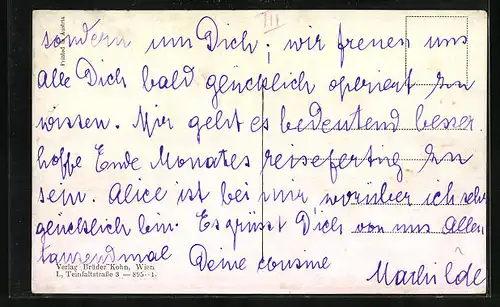 III
Printed in Austria
sondern um Dich; wir freuen uns
alle Dich bald glücklich operiert zu
wissen. Mir geht es bedeutend besser
hoffe Ende Monates reisefertig zu
sein. Alice ist bei mir worüber ich sehr
glücklich bin. Es grüsst Dich von uns Allen
tausendmal Deine Cousine
Mathilde
Verlag Brüder Kohn, Wien
I., Teinfaltstraße 3 — 895-1.